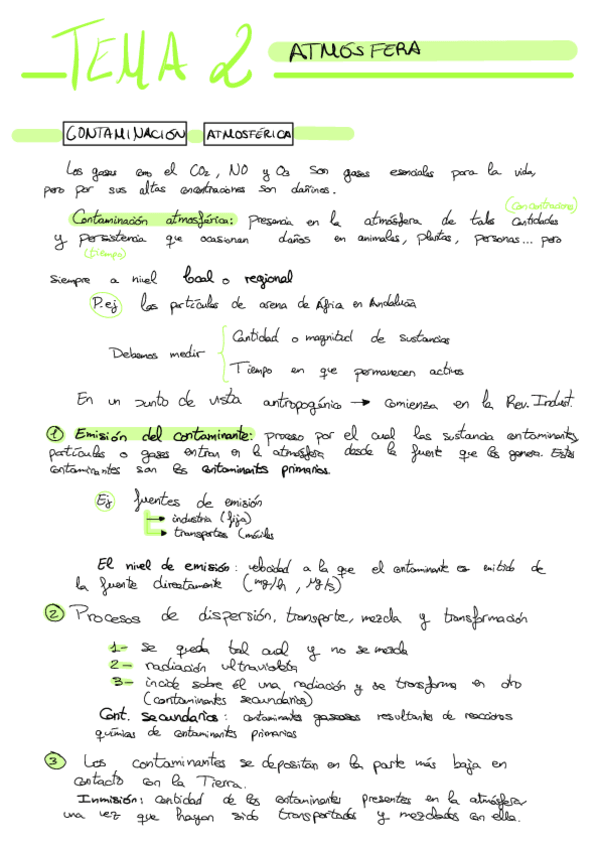 TEMA 2 ATMÓSFERA
CONTAMINACIÓN ATMOSFÉRICA
Los gases como el CO2, NO y O3 son gases esenciales para la vida,
pero por sus altas concentraciones son dañinos.
(concentraciones)
Contaminación atmosférica: presencia en la atmósfera de tales cantidades
y persistencia que ocasionan daños en animales, plantas, personas... pero
(tiempo)
siempre a nivel local o regional
P.ej las partículas de arena de África en Andalucía
Cantidad o magnitud de sustancias
Debemos medir
Tiempo en que permanecen activos
En un punto de vista antropogénico → comienza en la Rev. Indust.
1 Emisión del contaminante: proceso por el cual las sustancia contaminantes,
partículas o gases entran en la atmósfera desde la fuente que los genera. Estos
contaminantes son los contaminantes primarios.
Ej fuentes de emisión
→ industria (fija)
→ transportes (móviles
El nivel de emisión: velocidad a la que el contaminante es emitido de
la fuente directamente (mg/h, µg/s)
2 Procesos de dispersión, transporte, mezcla y transformación
1- se queda tal cual y no se mezcla
2- radiación ultravioleta
3- incide sobre él una radiación y se transforma en otro
(contaminantes secundarios)
Cont. secundarios: contaminantes gaseosos resultantes de reacciones
químicas de contaminantes primarios
3 Los contaminantes se depositan en la parte más baja en
contacto con la Tierra.
Inmisión: cantidad de los contaminantes presentes en la atmósfera
una vez que hayan sido transportados y mezclados en ella.